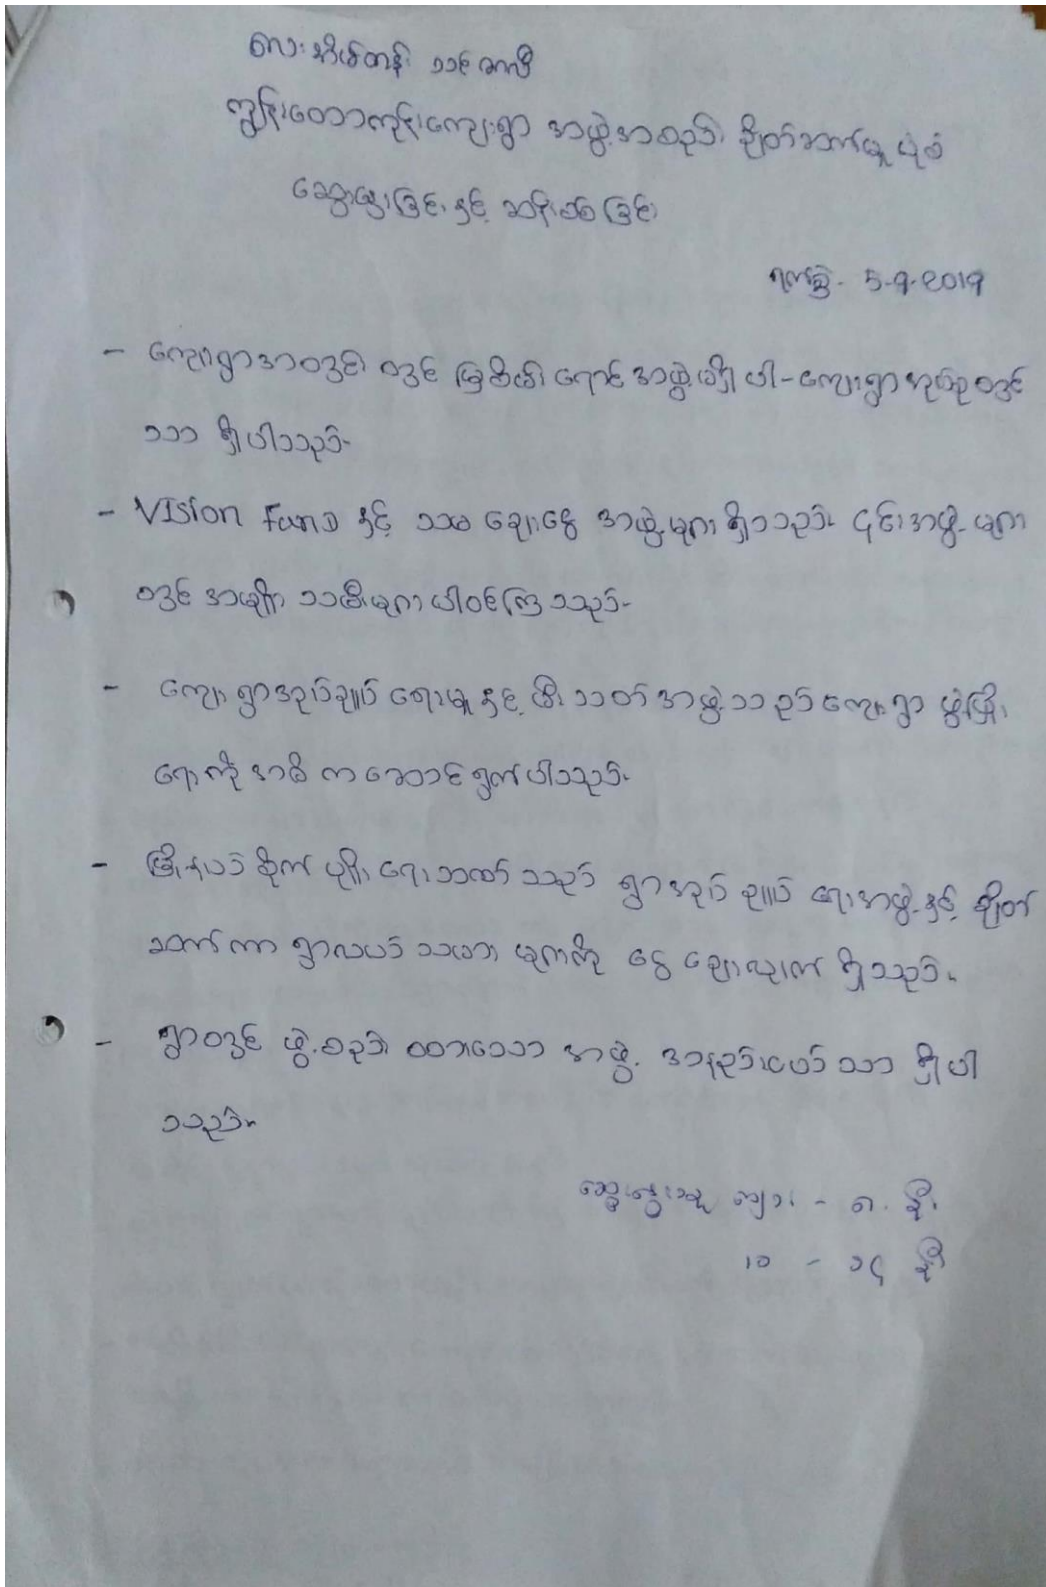 လေးအိမ်တန်း သင်္ဘော
ကျွန်းတောကုန်းကျေးရွာ အဖွဲ့အစည်း ချိတ်ဆက်မှု ပုံစံ
ဆွေးနွေးခြင်း နှင့် ဆန်းစစ်ခြင်း
ရက်စွဲ- 5-9-2019
- ကျေးရွာအတွင်း တွင် မြစိမ်းရောင် အဖွဲ့မရှိပါ - ကျေးရွာအုပ်စုတွင်
သာ ရှိပါသည်။
- VISion Fund နှင့် သမ ချေးငွေ အဖွဲ့များ ရှိသည်။ ၎င်းအဖွဲ့များ
တွင် အမျိုးသမီးများ ပါဝင်ကြသည်။
- ကျေးရွာအုပ်ချုပ်ရေးမှူး နှင့် မီးသတ်အဖွဲ့သည် ကျေးရွာ ဖွံ့ဖြိုး
ရေးကို အဓိက ဆောင်ရွက်ပါသည်။
- မြို့နယ် စိုက်ပျိုးရေးဘဏ် သည် ရွာအုပ်ချုပ်ရေးအဖွဲ့နှင့် ချိတ်
ဆက်ကာ ရွာလယ်သမားများကို ငွေချေးလျက် ရှိသည်။
- ရွာတွင် ဖွဲ့စည်းထားသော အဖွဲ့ အနည်းငယ်သာ ရှိပါ
သည်။
ဆွေးနွေးသူ ကျား - ၈ ဦး
မ - ၁၄ ဦး